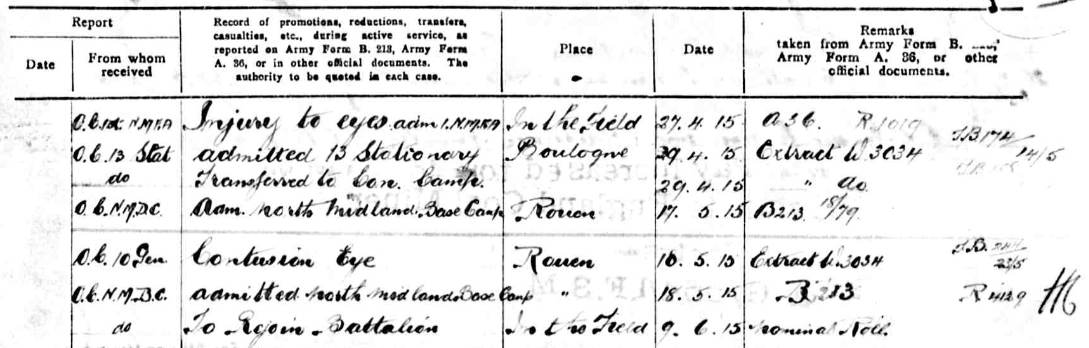 Report
Record of promotions, reductions, transfers, casualties, etc., during active service, as reported on Army Form B. 213, Army Form A. 36, or in other official documents. The authority to be quoted in each case.
Place
Date
Remarks taken from Army Form B. Army Form A. 36, or other official documents.
Date
From whom received
O.C. 1st N.M.F.A Injury to eyes adm 1. N.M.F.A In the Field 27.4.15 A36. R1019
O.C. 13 Stat admitted 13 Stationary Boulogne 29.4.15 Extract W.3034 14/5
do Transferred to Con. Camp. 29.4.15 " do
O.C. N.M.B.C. Adm. North Midland Base Camp Rouen 17.5.15 B213
O.C. 10 Gen Contusion Eye Rouen 16.5.15 Extract W.3034
O.C. N.M.B.C. admitted North Midland Base Camp " 18.5.15 B213
do To Rejoin Battalion In the Field 9.6.15 Nominal Roll.